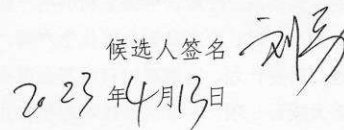 候选人签名 刘
2023年4月13日